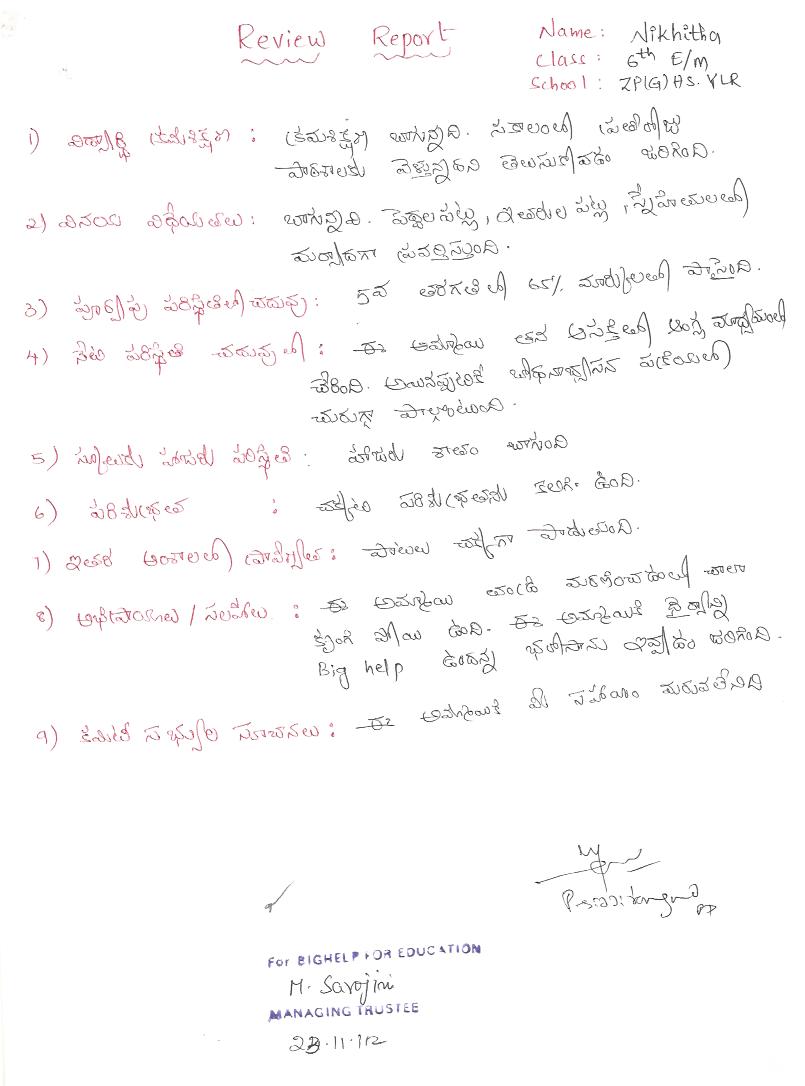 Review Report
Name: Nikhitha
Class: 6th E/m
School: ZP(G)HS. YLR
1) విద్యార్థి క్రమశిక్షణ : క్రమశిక్షణ బాగున్నది. సకాలంలో ప్రతిరోజు
పాఠశాలకు వెళ్తున్నదని తెలుసుకోవడం జరిగింది.
2) వినయ విధేయతలు : బాగున్నవి. పెద్దలపట్ల, ఇతరుల పట్ల, స్నేహితులతో
మర్యాదగా ప్రవర్తిస్తుంది.
3) పూర్వపు పరిస్థితిలో చదువు : 5వ తరగతిలో 65% మార్కులతో పాసైంది.
4) నేటి పరిస్థితి చదువులో : ఈ అమ్మాయి తన ఆసక్తితో ఆంగ్ల మాధ్యమంలో
చేరింది. అయినప్పటికి బోధనాభ్యసన ప్రక్రియలో
చురుగ్గా పాల్గొంటుంది.
5) స్కూలుకు హాజరు పరిస్థితి : హాజరు శాతం బాగుంది
6) పరిశుభ్రత : చక్కటి పరిశుభ్రతను కలిగి ఉంది.
7) ఇతర అంశాలలో ప్రావీణ్యత : పాటలు చక్కగా పాడుతుంది.
8) అభిప్రాయాలు / సలహాలు : ఈ అమ్మాయి తండ్రి మరణించడంలో చాలా
కృంగి పోయి ఉంది. ఈ అమ్మాయికి ధైర్యాన్ని
Big help ఉందన్న భరోసాను ఇవ్వడం జరిగింది.
9) కమిటీ సభ్యుల సూచనలు : ఈ అమ్మాయికి మీ సహాయం మరువలేనిది
For BIGHELP FOR EDUCATION
M. Sarojini
MANAGING TRUSTEE
23.11.112